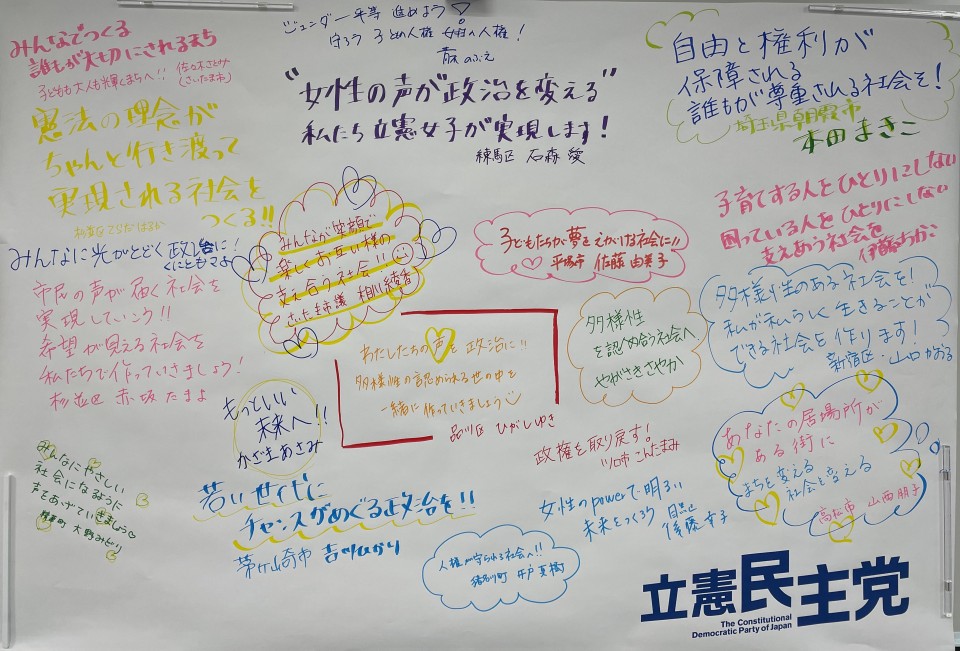 みんなでつくる
誰もが大切にされるまち
子どもも大人も輝くまちへ!! 佐々木さとみ
(さいたま市)
憲法の理念が
ちゃんと行き渡って
実現される社会を
つくる!!
みんなに光がとどく政治に!
くにともマよ
市民の声が届く社会を
実現していこう!!
希望が見える社会を
私たちで作っていきましょう!
杉並区 赤坂たまよ
みんなにやさしい
社会になるように
声をあげていきましょう♡
大野みどり
ジェンダー平等 進めよう!
守ろう 子どもの人権 女性の人権!
のぶえ
"女性の声が政治を変える"
私たち立憲女子が実現します!
練馬区 石森 愛
みんなが笑顔で
楽しくお互い様の
支え合う社会!!
さいたま市議 相川綾香
子どもたちが夢をえがける社会に!!
平塚市 佐藤由美子
わたしたちの声を政治に!!
多様性の認められる世の中を
一緒に作っていきましょう
品川区 ひがしゆき
もっといい
未来へ!!
かざまあさみ
若い世代に
チャンスがめぐる政治を!!
茅ヶ崎市 吉川ひかり
自由と権利が
保障される
誰もが尊重される社会を!
埼玉県朝霞市
本田まきこ
子育てする人をひとりにしない
困っている人をひとりにしない
支えあう社会を
伊藤ちかこ
多様性
を認め合う社会へ
やがさきさやか
多様性のある社会を!
私が私らしく生きることが
できる社会を作ります!
新宿区・山口かおる
政権を取り戻す!
こんたまみ
あなたの居場所が
ある街に
まちを変える
社会を変える
高松市 山西朋子
女性のpowerで明るい
未来をつくろう 目黒
後藤幸子
人権が守られる社会へ!!
猪名川町 井戸真樹
立憲民主党
The Constitutional
Democratic Party of Japan